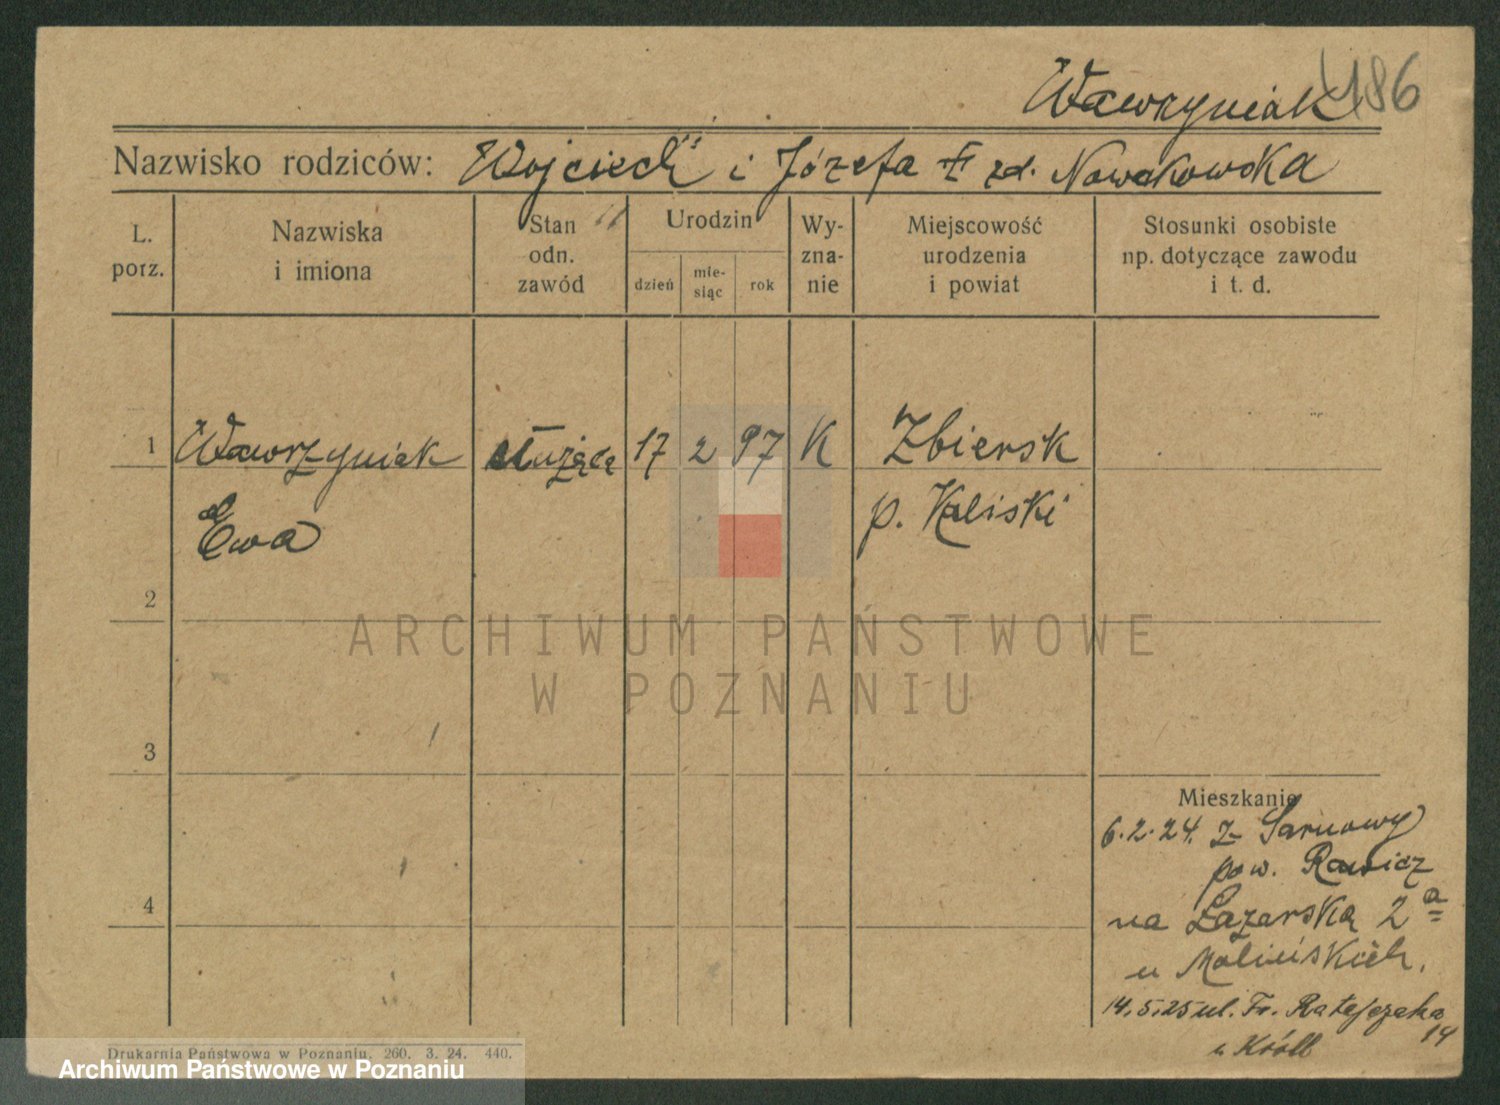 Wawrzyniak 186
Nazwisko rodziców: Wojciech i Józefa zd. Nowakowska
L. porz.
Nazwiska i imiona
Stan odn. zawód
Urodzin
dzień
mie- siąc
rok
Wy- zna- nie
Miejscowość urodzenia i powiat
Stosunki osobiste np. dotyczące zawodu i t. d.
1 Wawrzyniak służąca 17 2 97 K Zbiersk
Ewa p. Kaliski
2
ARCHIWUM PAŃSTWOWE
W POZNANIU
3
Mieszkanie
6.2.24. z Sarnowy
pow. Rawicz
4
na Łazarską 2a
u Malińskich.
14.5.25 ul. Fr. Ratajczaka 14
u Król
Drukarnia Państwowa w Poznaniu. 260. 3. 24. 440.
Archiwum Państwowe w Poznaniu